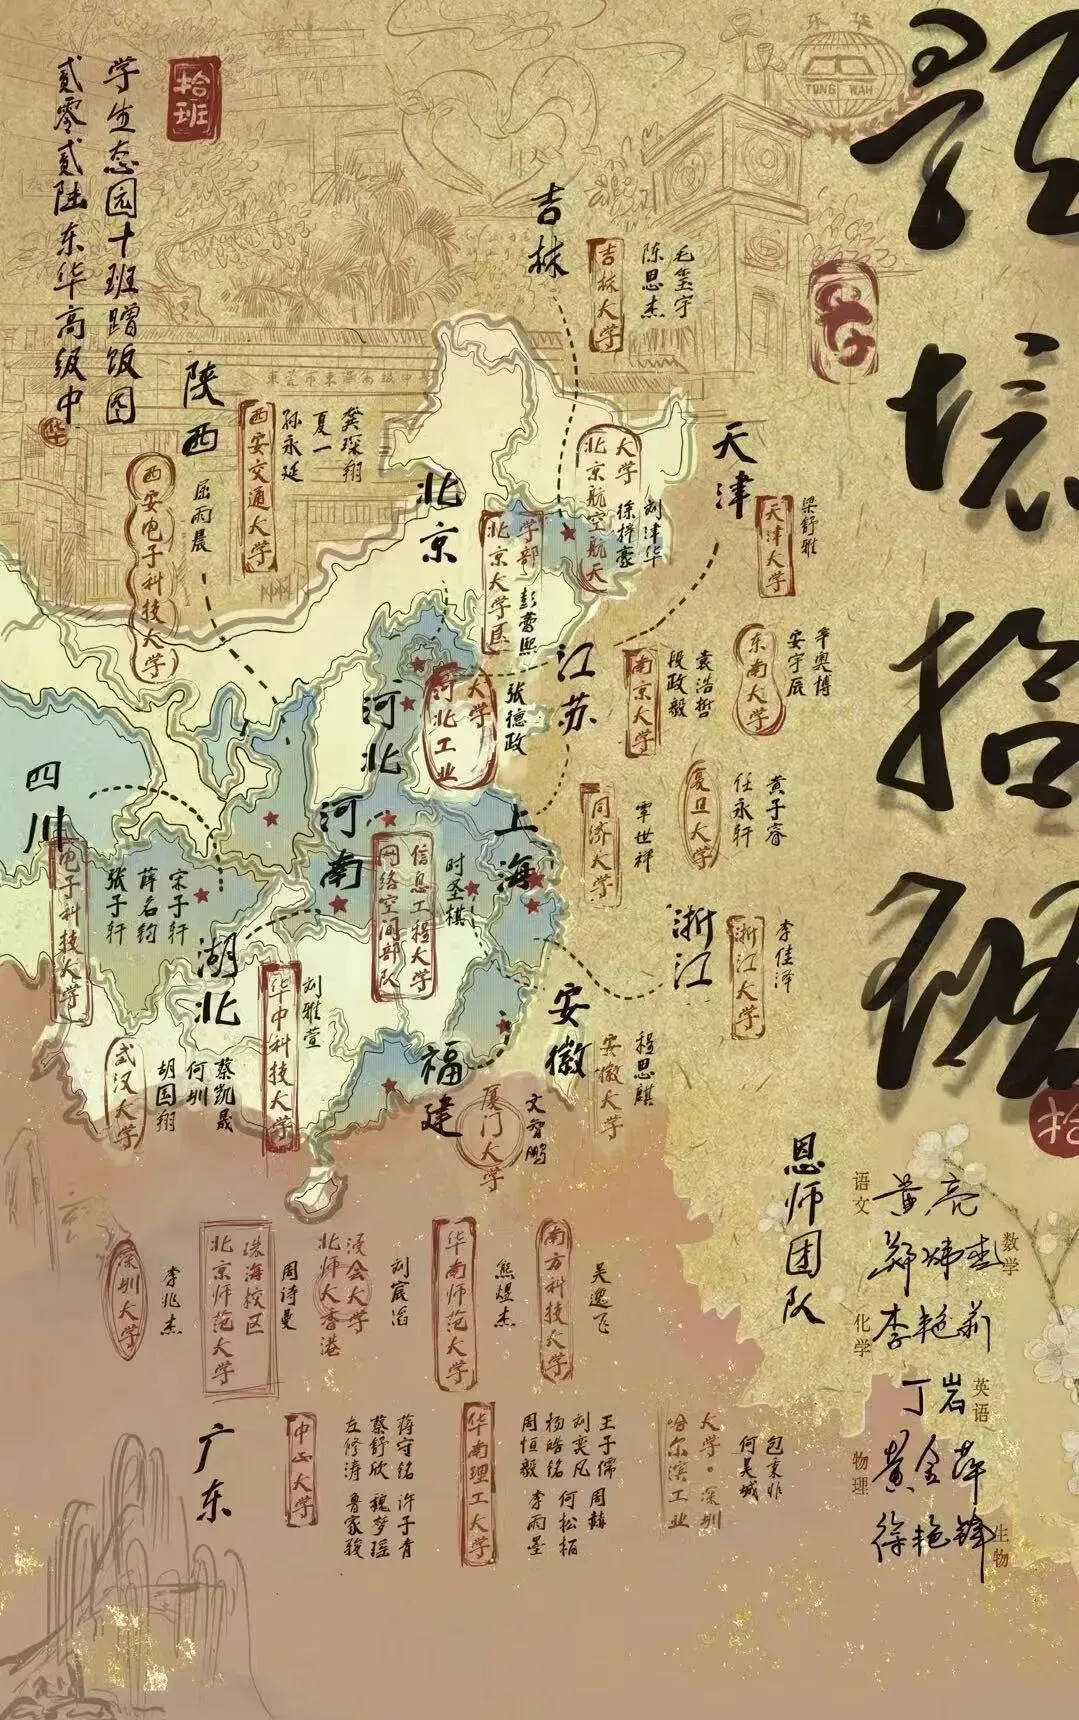 学生态园十班蹭饭图
贰零贰陆东华高级中
拾班
华
东华
TUNG WAH
东莞市东华高级中
拾
吉林
吉林大学
陈思杰
毛玺宇
陕西
西安交通大学
孙永延
夏一
龚琛翔
西安电子科技大学
屈雨晨
北京
北京大学医学部
彭蕾熙
北京航空航天大学
徐梓豪
刘津华
天津
天津大学
梁舒雅
河北
河北工业大学
张德政
江苏
南京大学
段政毅
袁浩哲
东南大学
安宇辰
辛奥博
上海
同济大学
覃世祥
复旦大学
任永轩
黄子睿
四川
电子科技大学
张子轩
薛名钧
宋子轩
河南
信息工程大学
网络空间部队
时圣棋
湖北
武汉大学
胡国翔
何圳
蔡凯晟
华中科技大学
刘雅萱
浙江
浙江大学
李佳泽
安徽
安徽大学
程思麒
福建
厦门大学
文智鹏
深圳大学
李兆杰
北京师范大学
珠海校区
周诗曼
北师大香港
浸会大学
刘宸滔
华南师范大学
熊煜杰
南方科技大学
吴逸飞
广东
中山大学
左修涛 鲁家骏
蔡舒欣 魏梦瑶
蒋守铭 许子青
华南理工大学
周恒毅 李雨墨
杨皓铭 何松栢
刘奕凡
王子儒 周赫
哈尔滨工业
大学·深圳
何昊城
包秉非
恩师团队
语文
黄亮
数学
郑炜杰
化学
李艳莉
英语
丁岩
物理
黄金萍
生物
徐艳锋